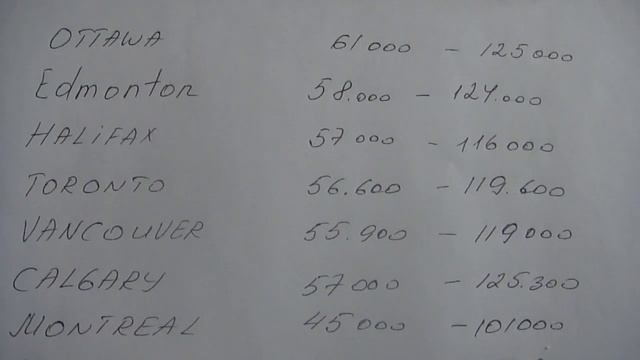 OTTAWA 61000 - 125000
Edmonton 58.000 - 124.000
HALiFAX 57000 - 116000
TORONTO 56.600 - 119.600
VANCOUVER 55.900 - 119000
CALGARY 57000 - 125.300
MONTREAL 45000 - 101000